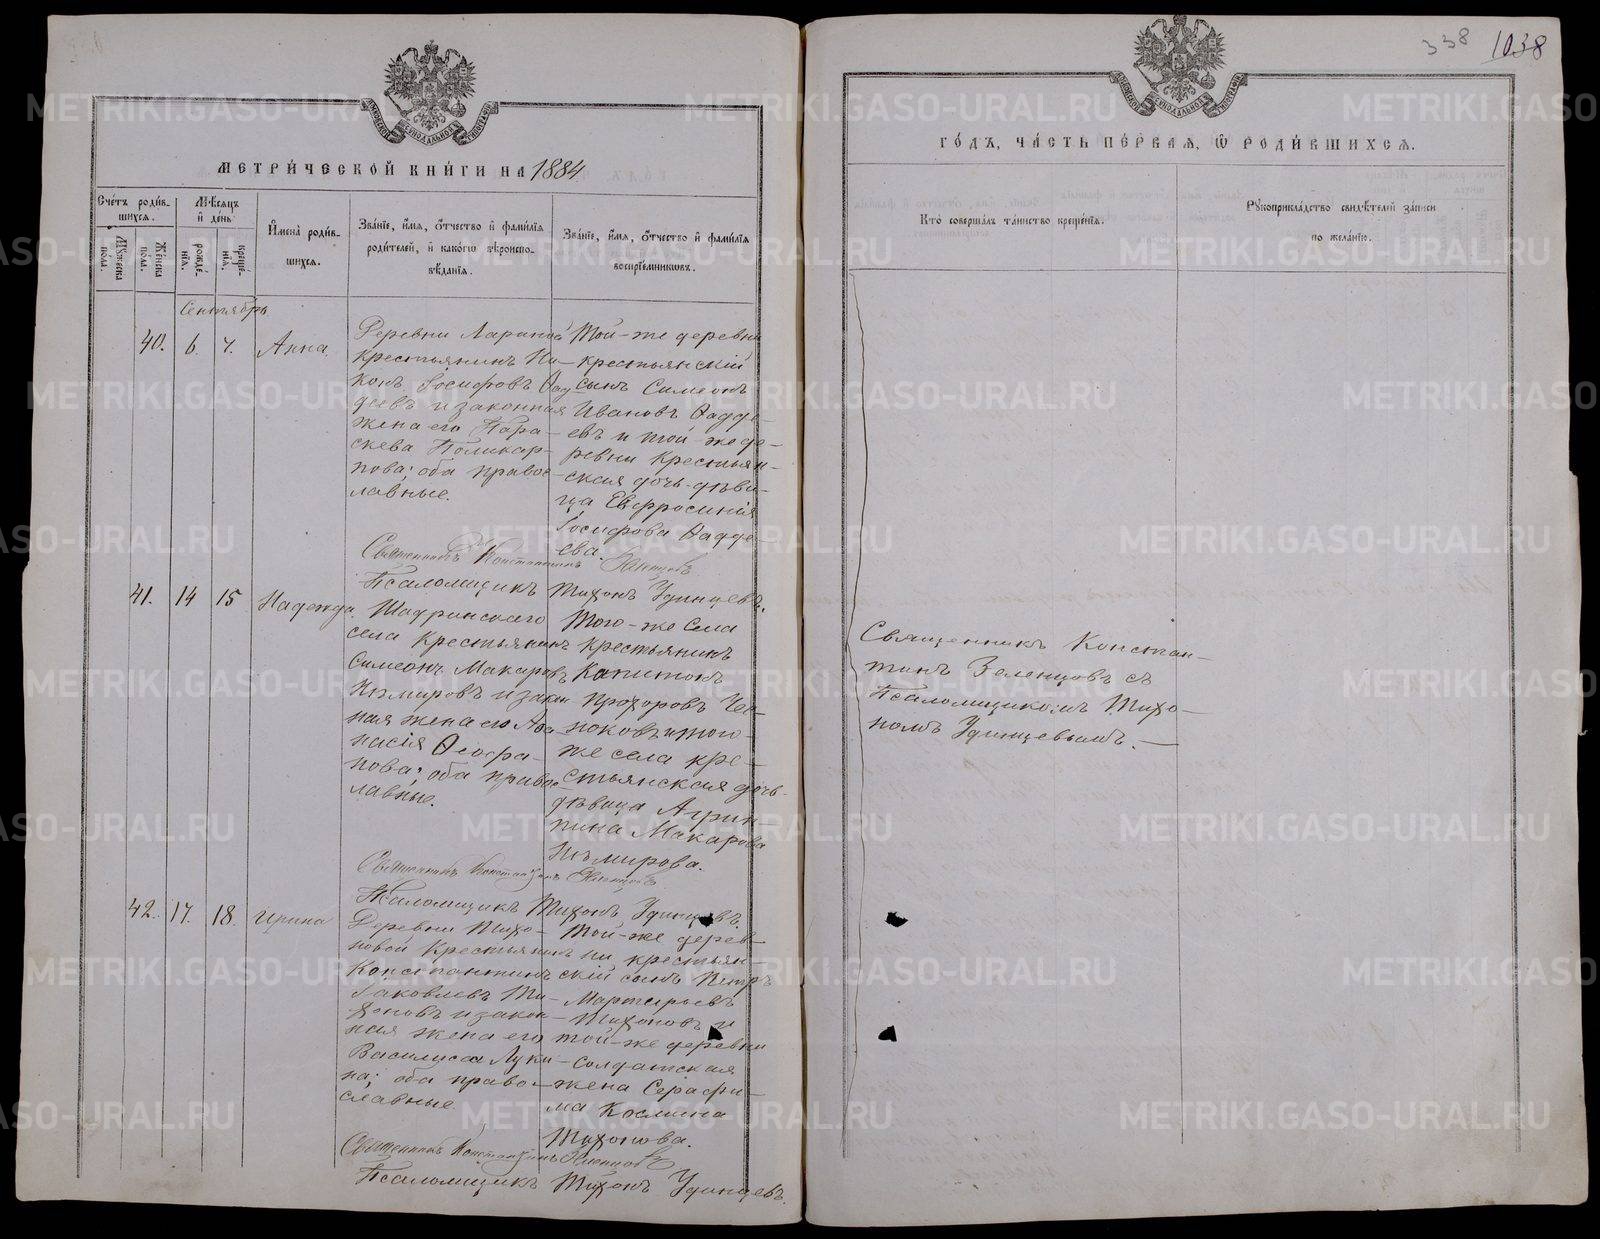 МЕТРИ́ЧЕСКОЙ КНИ́ГИ НА 1884
Сче́тъ роди́в-
шихсѧ.
Мꙋ́жеска
по́ла.
Же́нска
по́ла.
Мѣ́сѧцъ
и҆ де́нь
рожде́-
нїѧ.
креще́-
нїѧ.
И҆мена̀ роди́в-
шихсѧ.
Зва́нїе, и҆́мѧ, ѻ҆́тчество и҆ фами́лїѧ
роди́телей, и҆ како́гѡ вѣроиспо-
вѣ́данїѧ.
Зва́нїе, и҆́мѧ, ѻ҆́тчество и҆ фами́лїѧ
воспрїе́мникѡвъ.
Сентябрь
40. 6. 7. Анна
Деревни Ларино
крестьянинъ Ни-
конъ Іосифовъ Ѳад
деевъ и законная
жена его Пара-
скева Поликар-
пова; оба правос-
лавные.
Той-же деревни
крестьянскій
сынъ Симеонъ
Ивановъ Ѳадде-
евъ и той-же де-
ревни крестьян-
ская дочь-дѣви-
ца Евфросинія
Іосифова Ѳадде-
ева.
Священникъ Константинъ Зеленцовъ
Псаломщикъ Тихонъ Удинцевъ.
41. 14 15 Надежда.
Шадринскаго
села крестьянинъ
Симеонъ Макаровъ
Кимировъ и закон
ная жена его Аѳа
насія Ѳеофа-
нова; оба правос
лавные.
Того-же села
крестьянинъ
Капитонъ
Прохоровъ Че-
ноковъ и того-
же села кре-
стьянская дочь-
дѣвица Агрип-
пина Макарова
Священникъ Константинъ Зеленцовъ
Псаломщикъ Тихонъ Удинцевъ.
42. 17. 18. Ирина
Деревни Тихо-
новой крестьянинъ
Константинъ
Іаковлевъ Ти-
хоновъ и закон-
ная жена его
Василиса Луки-
на; оба право-
славные.
Той-же дерев-
ни крестьян-
скій сынъ Петръ
Мартирьевъ
Тихоновъ и
той-же деревни
солдатская
жена Серафи-
ма Космина
Тихонова.
Священникъ Константинъ Зеленцовъ
Псаломщикъ Тихонъ Удинцевъ.
338 1038
ГО́ДЪ, ЧА́СТЬ ПЕ́РВАѦ, Ѽ РОДИ́ВШИХСѦ.
Кто̀ соверша́лъ та́инство креще́нїѧ.
Рꙋкоприкла́дство свидѣ́телей за́писи
по жела́нїю.
Священникъ Констан-
тинъ Зеленцовъ съ
Псаломщикомъ Тихо-
номъ Удинцевымъ.
METRIKI.GASO-URAL.RU